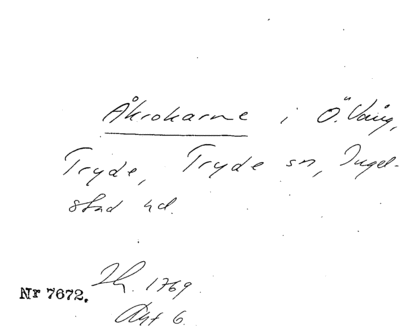 Åkrokarne i Ö. Vång,
Tryde, Tryde sn, Ingel-
stad hd.
Nr 7672.
1769
Akt 6